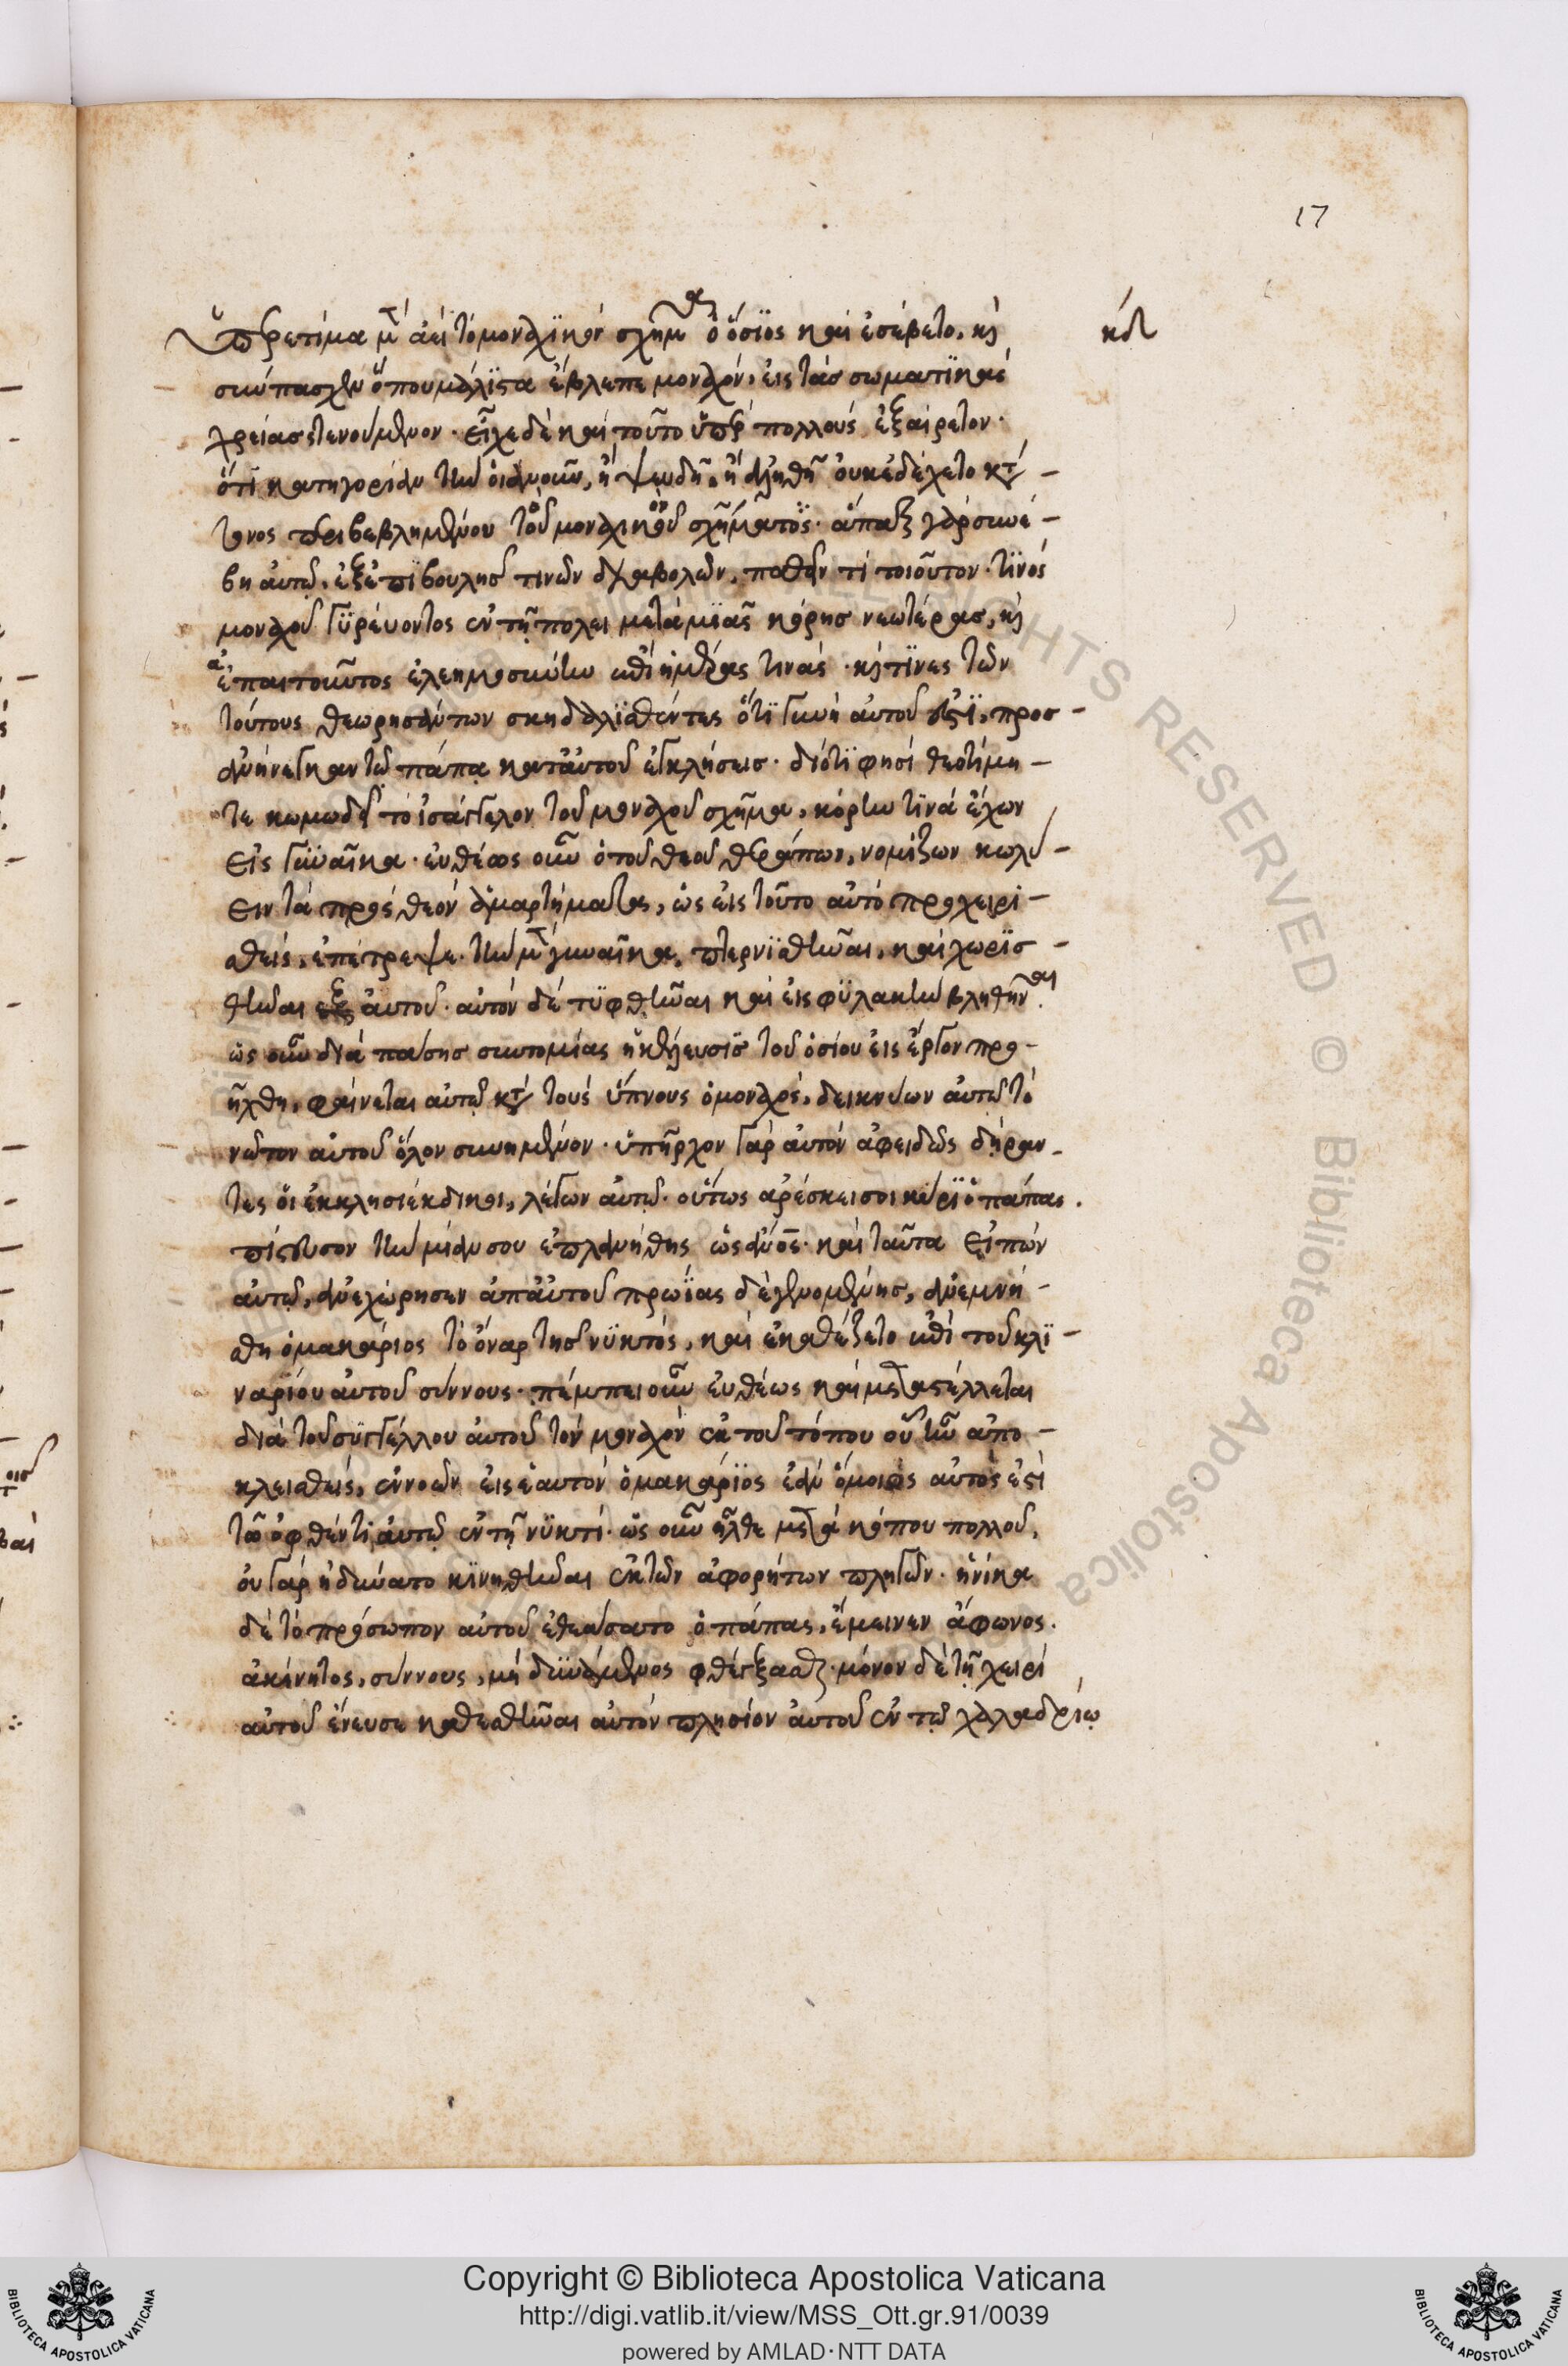 17
κδ
Ὑπερετίμα μὲν ἀεὶ τὸ μοναχϊκὸν σχῆμα ὁ ὅσϊος καὶ ἐσέβετο, κὶ
συνέπασχεν ὅπου μάλϊστα ἔβλεπε μοναχόν, εἰς τὰς σωματϊκὰς
χρείας στενούμενον. εἶχε δὲ καὶ τοῦτο ὑπὲρ πολλοὺς ἐξαίρετον.
ὅτϊ κατηγορίαν τὴν οἱανοῦν, ἢ ψευδῆ, ἢ ἀληθῆ οὐκ ἐδέχετο κατὰ
τινος περιβεβλημένου τοῦ μοναχικοῦ σχήματος. ἅπαξ γὰρ συνέ-
βη αὐτῷ, ἐξ ἐπϊβουλῆς τινῶν διαβολῶν, παθεῖν τὶ τοιοῦτον. τϊνὸς
μοναχοῦ γϋρεύοντος ἐν τῇ πόλει μετὰ μϊᾶς κόρης νεωτέρας, κὶ
ἐπαιτοῦντος ἐλεημοσύνην ἐπὶ ἡμέρας τινάς. κὶ τϊνες τῶν
τούτους θεωρησάντων σκανδαλϊσθέντες ὅτϊ γυνὴ αὐτοῦ ἐστϊ, προσ-
ανήνεγκαν τῷ πάπα κατ' αὐτοῦ ἐγκλήσεις. διότϊ φησὶ θεοτίμη-
τε κωμωδεῖ τὸ ἰσάγγελον τοῦ μοναχοῦ σχῆμα, κόρην τϊνὰ ἔχων
εἰς γϋναῖκα. εὐθέως οὖν ὁ τοῦ θεοῦ θεράπων, νομίζων κωλύ-
ειν τὰ πρὸς θεὸν ἁμαρτήματα, ὡς εἰς τοῦτο αὐτὸ προχειρι-
σθείς, ἐπέτρεψε. τὴν μὲν γυναῖκα, πτερνϊσθῆναι, καὶ χωρϊσ-
θῆναι ἐξ αὐτοῦ. αὐτὸν δὲ τϋφθῆναι καὶ εἰς φϋλακὴν βληθῆναι.
ὡς οὖν διὰ πάσης συντομίας ἡ κέλευσϊς τοῦ ὁσίου εἰς ἔργον προ-
ήχθη, φαίνεται αὐτῷ κατὰ τοὺς ὕπνους ὁ μοναχὸς, δεικνύων αὐτῷ τὸ
νῶτον αὐτοῦ ὅλον σεσημμένον. ὑπῆρχον γὰρ αὐτὸν ἀφειδῶς δήραν-
τες οἱ ἐκκλησιέκδικοι, λέγων αὐτῷ. οὕτως ἀρέσκει σοι κύρϊ ὁ πάπας.
πίστευσον τὴν μίαν σου ἐπλανήθης ὡς ἄνθρωπος. καὶ ταῦτα εἰπὼν
αὐτῷ, ἀνεχώρησεν ἀπ' αὐτοῦ πρωΐας δὲ γενομένης, ἀνεμνή-
σθη ὁ μακάριος τὸ ὄναρ τῆς νϋκτός, καὶ ἐκαθέζετο ἐπὶ τοῦ κλϊ-
ναρίου αὐτοῦ σύννους. πέμπει οὖν εὐθέως καὶ μεταστέλλεται
διὰ τοῦ σϋγγέλλου αὐτοῦ τὸν μοναχὸν ἐκ τοῦ τόπου οὗ ἦν ἀπο-
κλεισθείς, ἐννοῶν εἰς ἑαυτὸν ὁ μακάρϊος ἐὰν ὅμοιος αὐτὸς ἐστὶ
τῷ ὀφθέντϊ αὐτῷ ἐν τῇ νϋκτί. ὡς οὖν ἦλθε μετὰ κόπου πολλοῦ,
οὐ γὰρ ἠδύνατο κϊνηθῆναι ἐκ τῶν ἀφορήτων πληγῶν. ἡνίκα
δὲ τὸ πρόσωπον αὐτοῦ ἐθεάσατο ὁ πάπας, ἔμεινεν ἄφωνος.
ἀκίνητος, σύννους, μὴ δϋνάμενος φθέγξασθαι. μόνον δὲ τῇ χειρὶ
αὐτοῦ ἔνευσε καθεσθῆναι αὐτὸν πλησίον αὐτοῦ ἐν τῷ χαλαδρίῳ
ALL RIGHTS RESERVED © Biblioteca Apostolica
Copyright © Biblioteca Apostolica Vaticana
http://digi.vatlib.it/view/MSS_Ott.gr.91/0039
powered by AMLAD·NTT DATA
BIBLIOTECA APOSTOLICA VATICANA
BIBLIOTECA APOSTOLICA VATICANA